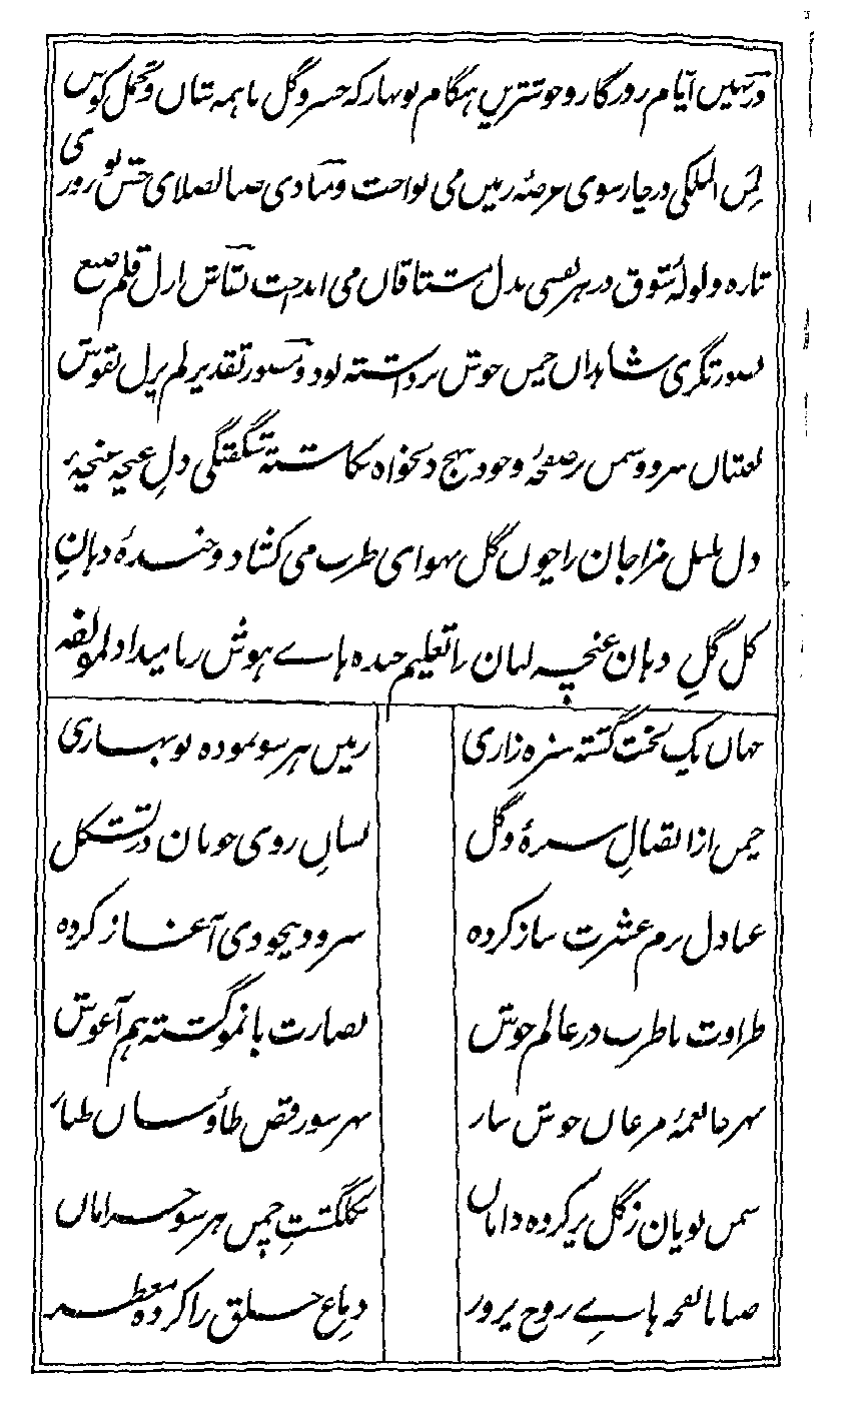 در بهین ایّام روزگار و خوشترین هنگام نوبهار که خسرو گل با همه شان و تجمل کوس
لمن الملکی در چارسوی عرصهٔ زمین می نواخت و منادی صبا الصلای جشن نوروزی
تازه ولولهٔ شوق در هر نفسی بدل مشتاقان می انداخت نقاش ازل قلم صنع
بصورتگری شاهدان چمن خوش برداشته بود و مصور تقدیر لم یزل نقوش
لعبتان سرو و سمن بر صفحهٔ وجود بنهج دلخواه نگاشته شگفتگی دلِ غنچه غنچهٔ
دل بلبل مزاجان را چون گل بهوای طرب می کشاد و خندهٔ دهانِ
گل گلِ دهان غنچه لبان را تعلیم خنده هاے هوش ربا میداد لمؤلفه
جهان یک لخت گشته سبزه زاری زمین هر سو نموده نوبهاری
چمن از اتصالِ سبزهٔ و گل بسانِ روی خوبان در تشکل
عنادل بزم عشرت ساز کرده سرود بیخودی آغاز کرده
طراوت با طرب در عالم خوش نضارت با نمو گشته هم آغوش
بهر جا نغمهٔ مرغان خوش ساز بهر سو رقص طاؤسان طناز
سمن بویان ز گل پر کرده دامان بگلگشتِ چمن هر سو خرامان
صبا با نفحه هاے روح پرور دماغ خلق را کرده معطر